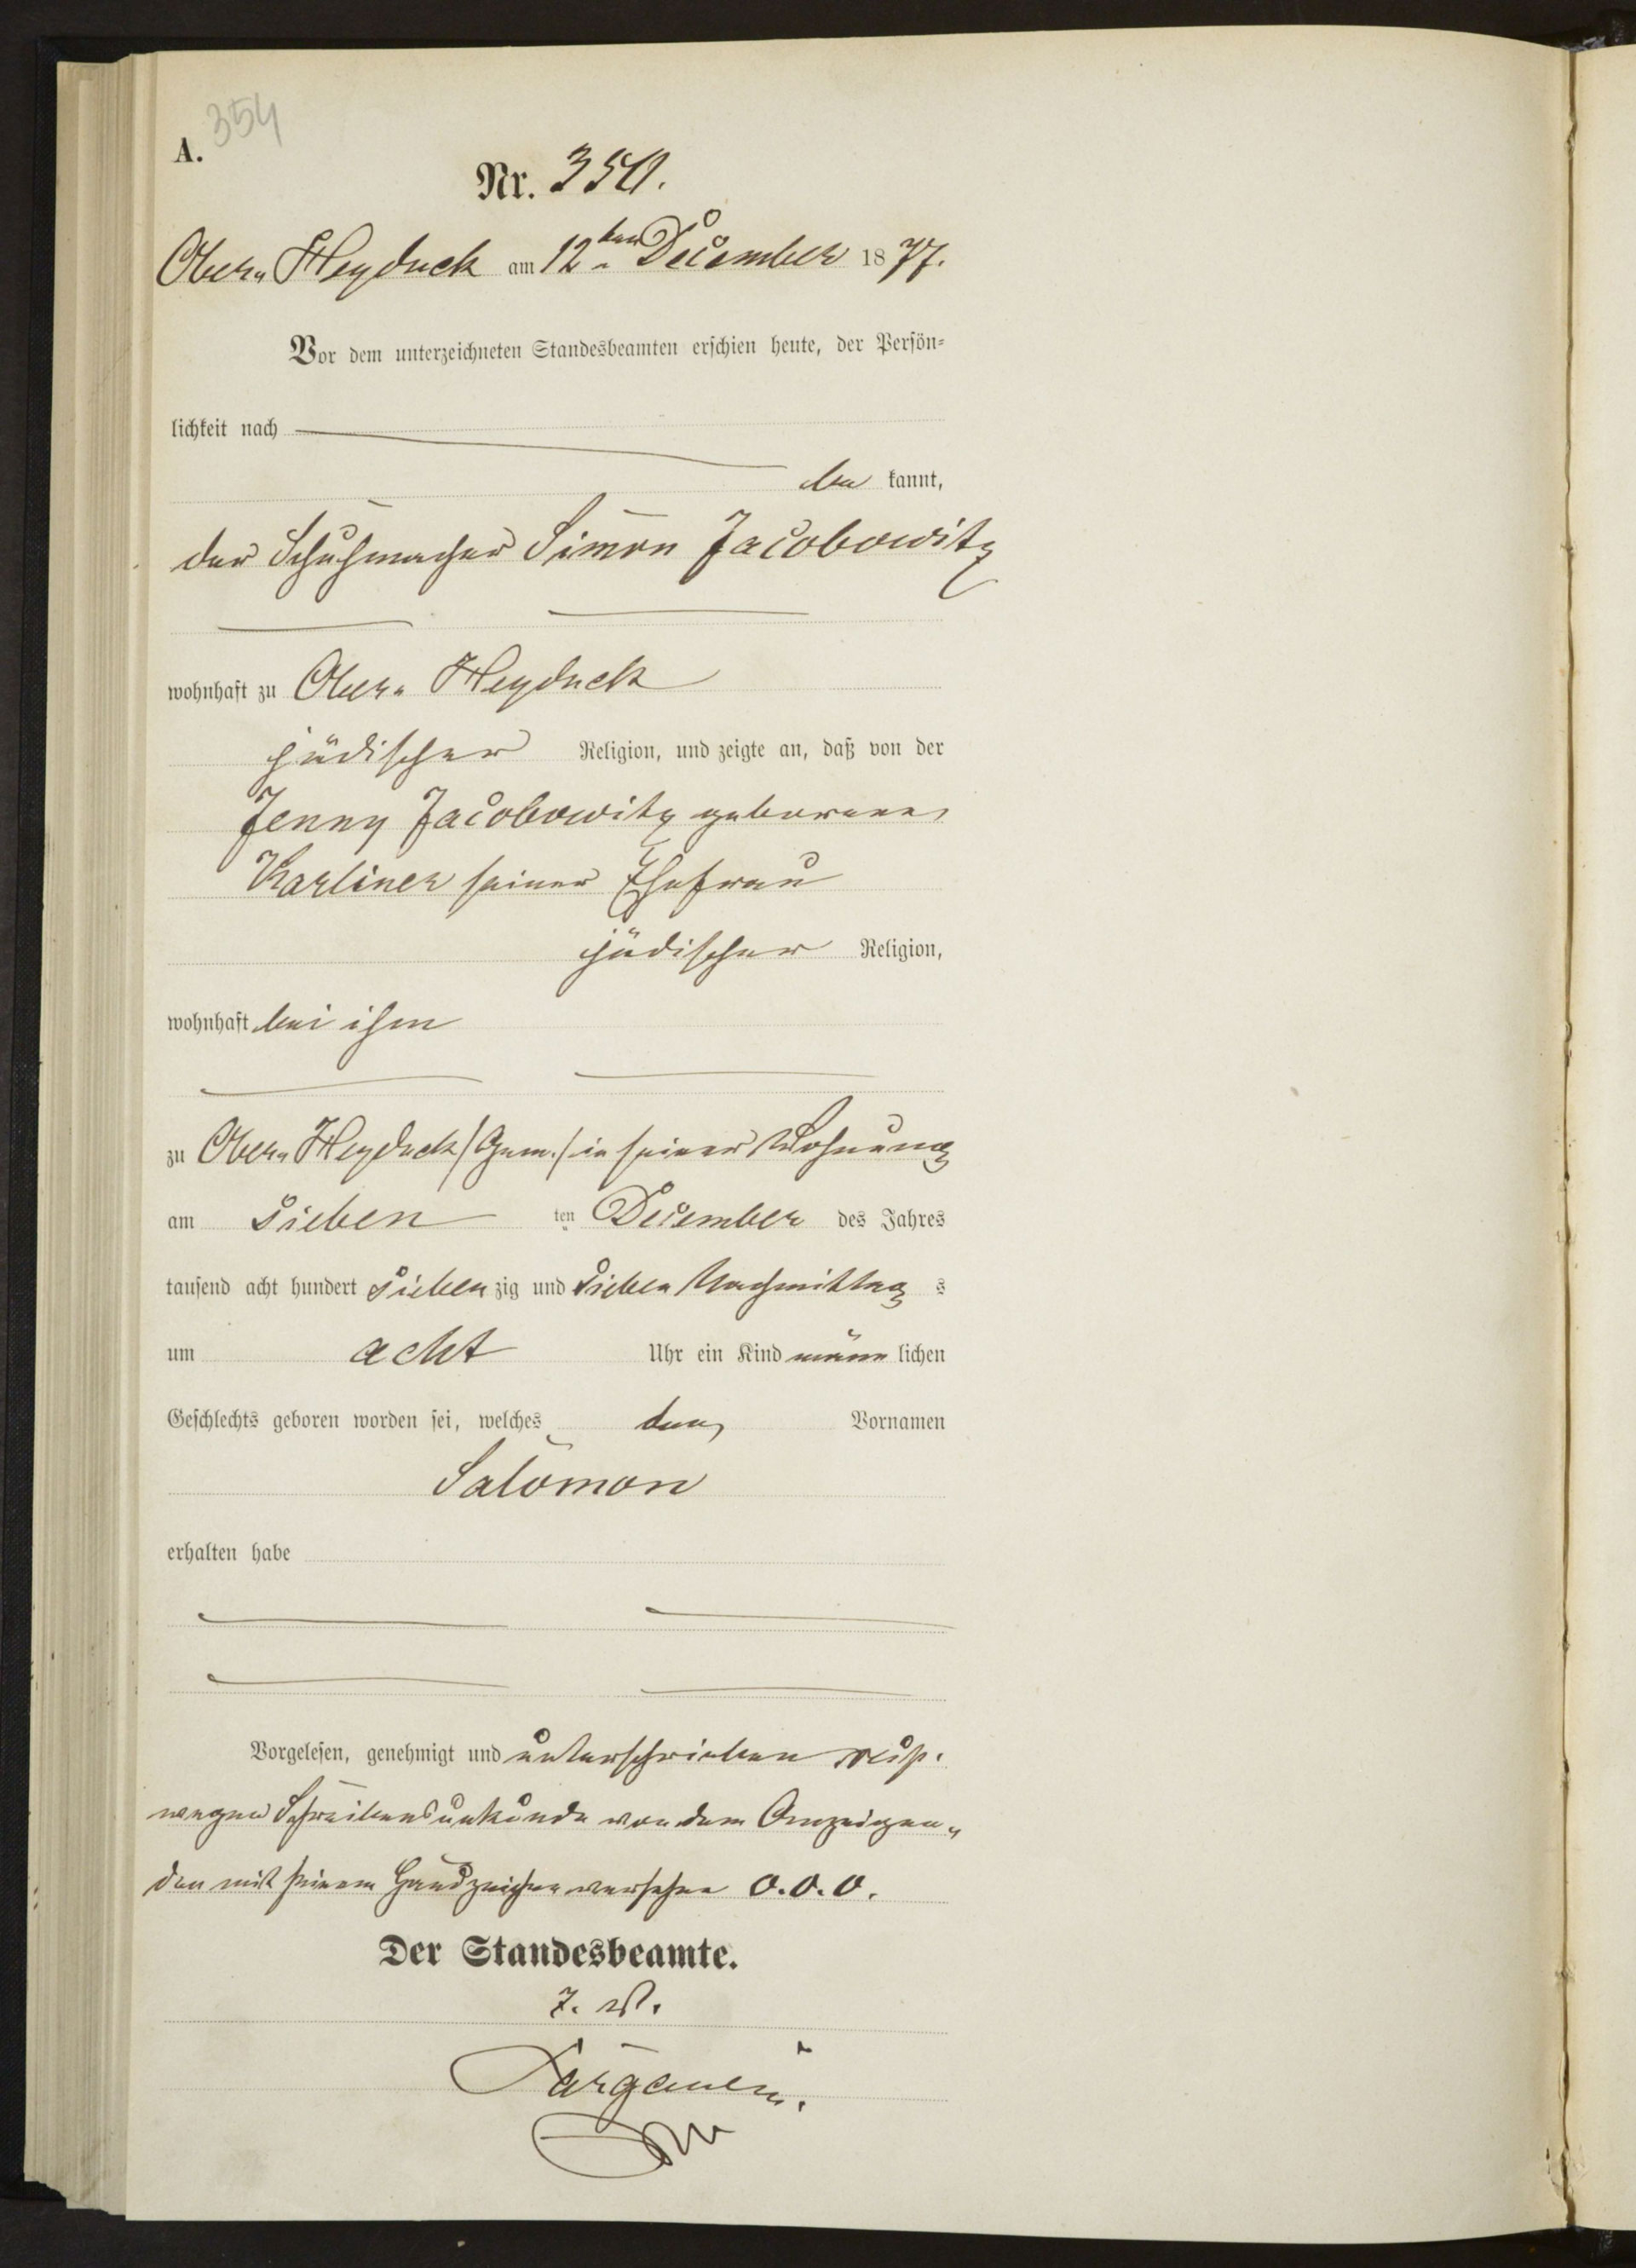 354
A.
Nr. 350.
Ober-Heyduck am 12ten December 1877.
Vor dem unterzeichneten Standesbeamten erschien heute, der Persön-
lichkeit nach
be kannt,
der Schuhmacher Simon Jacobowitz
wohnhaft zu Ober-Heyduck
jüdischer Religion, und zeigte an, daß von der
Jenny Jacobowitz geborenen
Karliner seiner Ehefrau
jüdischer Religion,
wohnhaft bei ihm
zu Ober-Heyduck /Gem./ in seiner Wohnung
am sieben ten December des Jahres
tausend acht hundert sieben zig und sieben Nachmittag s
um acht Uhr ein Kind männ lichen
Geschlechts geboren worden sei, welches den Vornamen
Salomon
erhalten habe
Vorgelesen, genehmigt und unterschrieben resp.
wegen Schreibensunkunde von dem Anzeigen-
den mit seinem Handzeichen versehen o.o.o.
Der Standesbeamte.